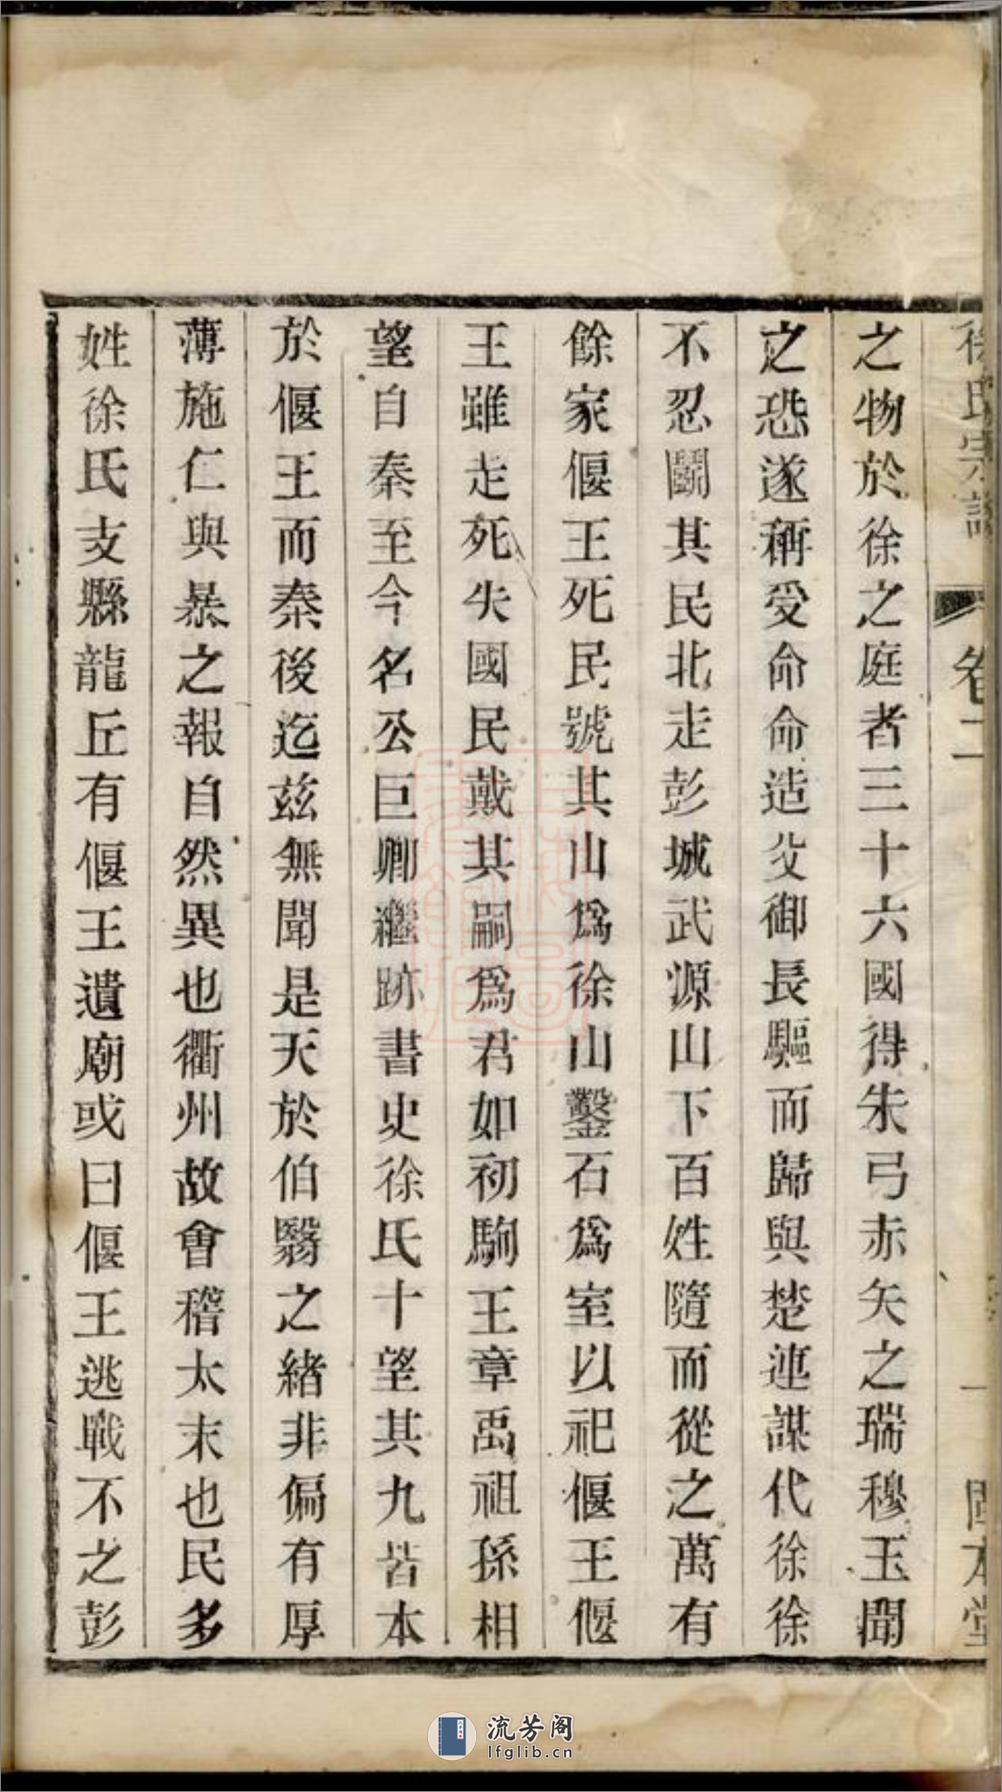 徐氏宗譜 卷二 一 固本堂
之物於徐之庭者三十六國得朱弓赤矢之瑞穆玉聞
之恐遂稱受命命造父御長驅而歸與楚連謀代徐徐
不忍鬭其民北走彭城武源山下百姓隨而從之萬有
餘家偃王死民號其山爲徐山鑿石爲室以祀偃王偃
王雖走死失國民戴其嗣爲君如初駒王章禹祖孫相
望自秦至今名公巨卿繼跡書史徐氏十望其九皆本
於偃王而秦後迄兹無聞是天於伯翳之緒非偏有厚
薄施仁與暴之報自然異也衢州故會稽太末也民多
姓徐氏支縣龍丘有偃王遺廟或曰偃王逃戰不之彭
流芳阁
lfglib.cn